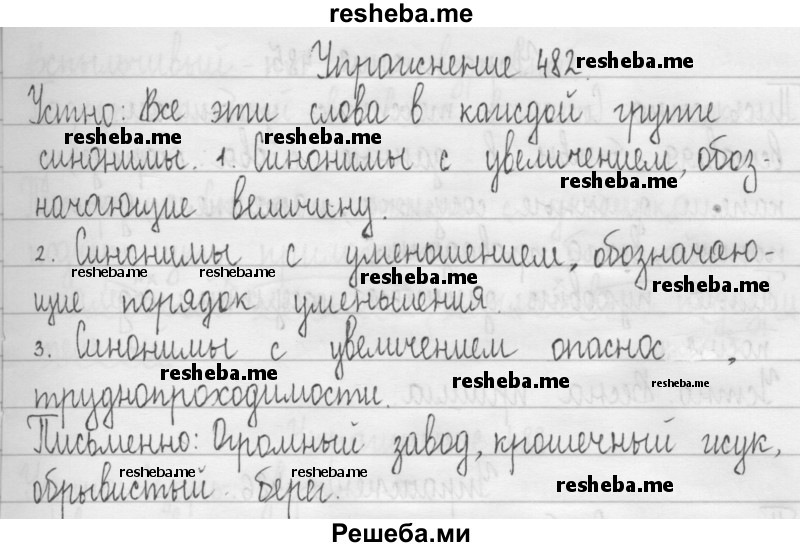 resheba.me
Упражнение 482. resheba.me
Устно: Все эти слова в каждой группе
resheba.me resheba.me
синонимы. 1. Синонимы с увеличением, обоз-
resheba.me
начающие величину.
2. Синонимы с уменошением, обозначаю-
resheba.me resheba.me resheba.me resheba.me
щие порядок уменьшения.
3. Синонимы с увеличением опаснос ,
resheba.me resheba.me resheba.me
труднопроходимости.
Письменно: Огромный завод, крошечный жук,
resheba.me resheba.me resheba.me
обрывистый берег.
Решеба.ми